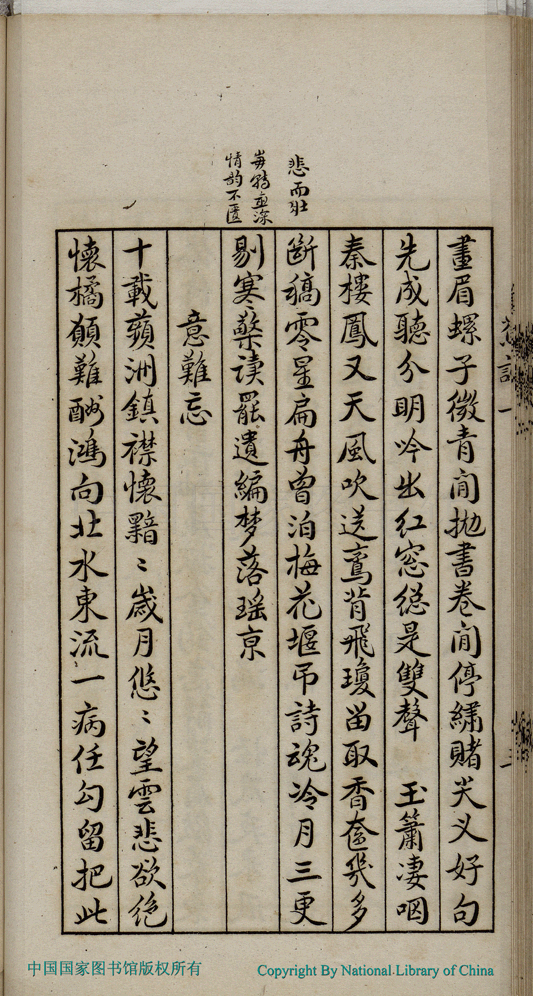 悲而壯
每於豔深
情韵不匱
畫眉螺子微青閒抛書卷閒停繡賭笑乂好句
先成聽分明吟出紅窓總是雙聲　玉簫凄咽
秦樓鳳又天風吹送鸞背飛瓊畱取香奩幾多
斷稿零星扁舟曾泊梅花堰弔詩魂冷月三更
剔寒檠读罷遺編梦落瑶京
意難忘
十載蘋洲鎮襟懷黯〻歲月悠〻望雲悲欲绝
懐橘願難酬鴻向北水東流一病任勾留把此
中国国家图书馆版权所有
Copyright By National Library of China